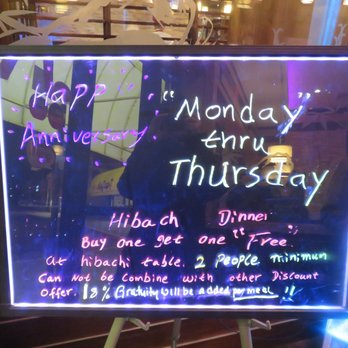 Happ
Anniversary
"Monday"
thru
Thursday
Hibach Dinner
Buy one get one "Free"
at hibachi table. 2 people minimun
Can Not be Combine with other Discount
offer. 18% Gratuity will be added per meal !!